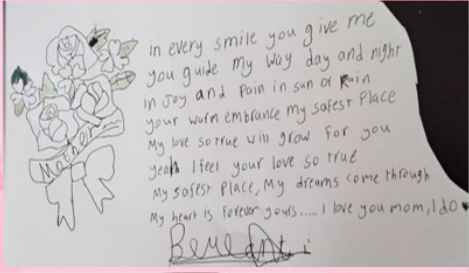 in every smile you give me
you guide my way day and night
in Joy and pain in sun or Rain
your warm embrance my safest place
My love so true will grow for you
yeah I feel your love so true
My safest place, My dreams come through
My heart is forever yours..... I love you mom, I do
Mother